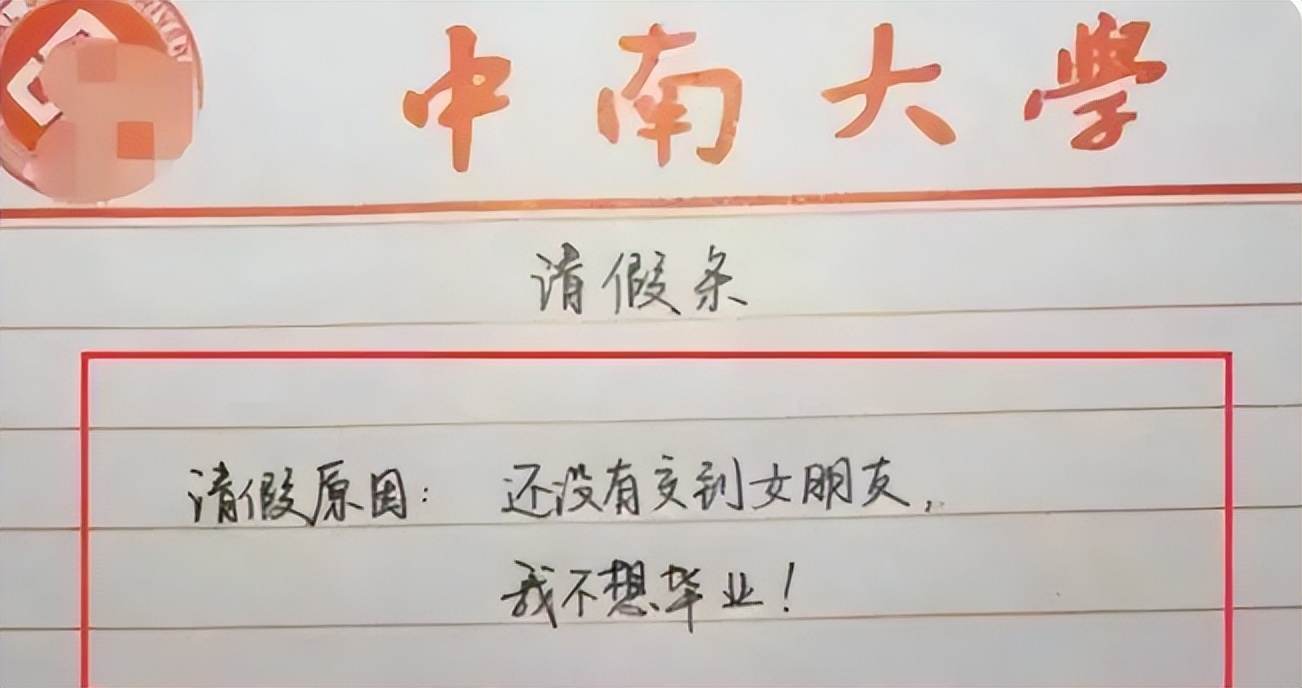 中南大學
请假条
请假原因：还没有交到女朋友，
我不想毕业！